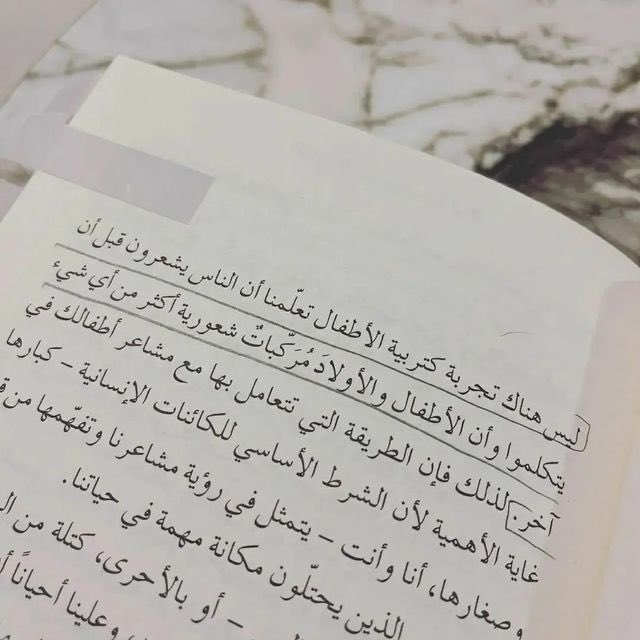 ليس هناك تجربة كتربية الأطفال تعلّمنا أن الناس يشعرون قبل أن
يتكلموا وأن الأطفال والأولادَ مُرَكّباتٌ شعورية أكثر من أي شيءٍ
آخر. لذلك فإن الطريقة التي تتعامل بها مع مشاعر أطفالك في
غاية الأهمية لأن الشرط الأساسي للكائنات الإنسانية – كبارها
وصغارها، أنا وأنت – يتمثل في رؤية مشاعرنا وتفهّمها من
الذين يحتلّون مكانة مهمة في حياتنا.
– أو بالأحرى، كتلة من
، وعلينا أحياناً